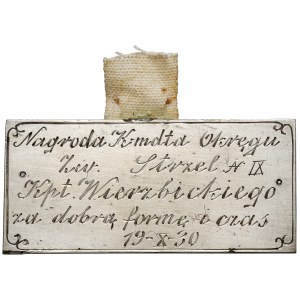 Nagroda Kmdta Okręgu
Zw. Strzel. N IX
Kpt. Wierzbickiego
za dobrą formę i czas
19-X-30